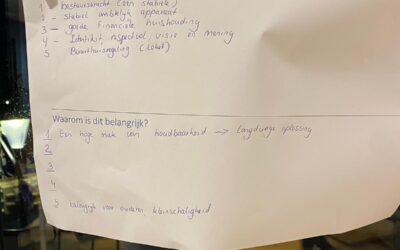 1 - bestuurskracht (een stabiele)
2 - Stabiel ambtelijk apparaat
3 - goede financiele huishouding
4 - Identiteit respecteer, visie en mening
5 Buurthuisregeling (Loket)
Waarom is dit belangrijk?
1 Een hoge mate van houdbaarheid → Langdurige oplossing
2
3
4
5 belangrijk voor ouderen kleinschaligheid